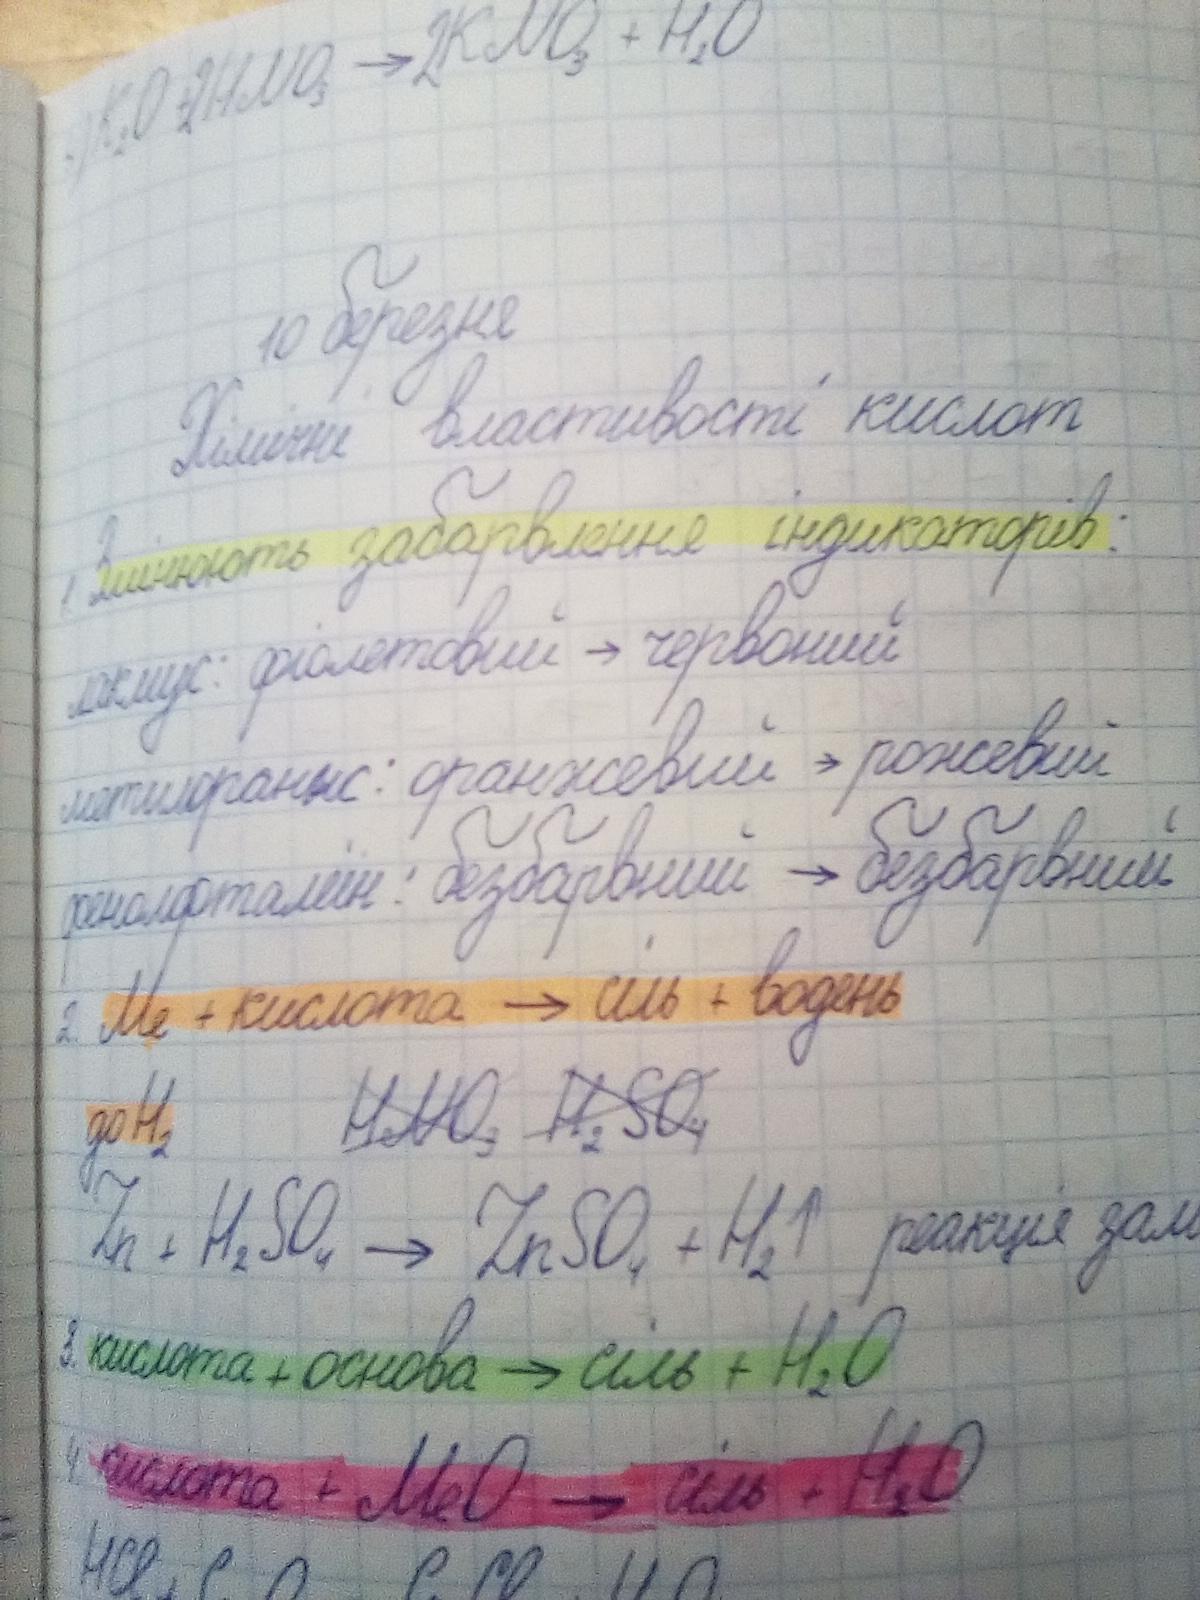 K₂O + 2HNO₃ → 2KNO₃ + H₂O
10 березня
Хімічні властивості кислот
1. Змінюють забарвлення індикаторів:
лакмус: фіолетовий → червоний
метилоранж: оранжевий → рожевий
фенолфталеїн: безбарвний → безбарвний
2. Ме + кислота → сіль + водень
до H₂ HNO₃ H₂SO₄
Zn + H₂SO₄ → ZnSO₄ + H₂↑ реакція зам
3. кислота + основа → сіль + H₂O
4. кислота + MeO → сіль + H₂O
HCl +